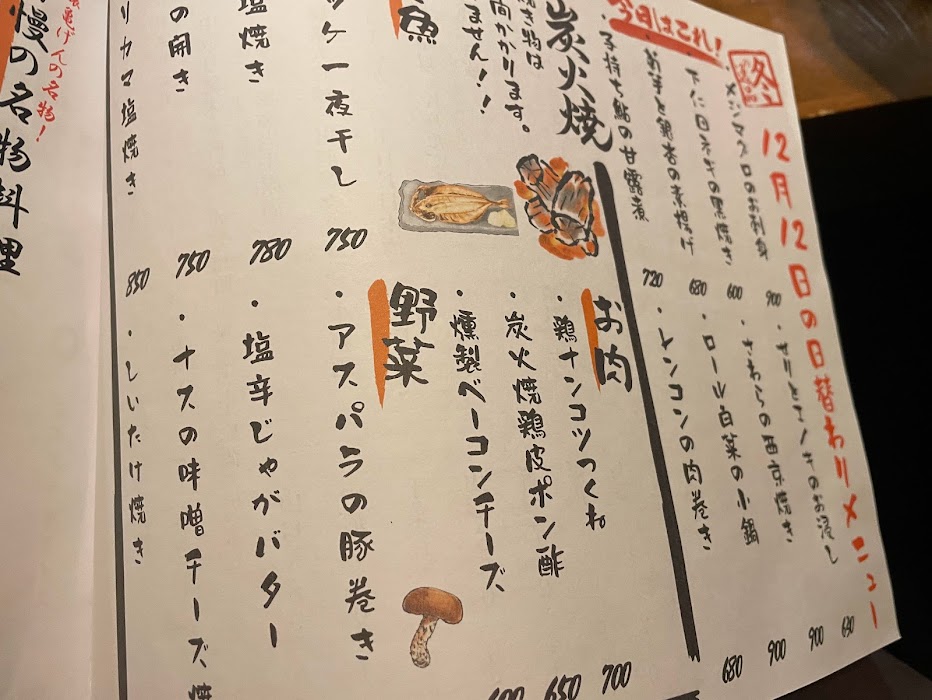 12月12日の日替わりメニュー
冬
今日はこれ!
・メジマグロのお刺身 900
下仁田ネギの黒焼き 600
お芋と銀杏の素揚げ 680
・子持ち鮎の甘露煮 720
・セリとエノキのお浸し 650
・さわらの西京焼き 900
・ロール白菜の小鍋 900
・レンコンの肉巻き 680
炭火焼
き物は
向かかります。
ません!!
お肉
・鶏ナンコツつくね 700
・炭火焼鶏皮ポン酢 650
・燻製ベーコンチーズ 600
魚
ッケ一夜干し 750
塩焼き 780
の開き 750
リカマ塩焼き 850
野菜
・アスパラの豚巻き
・塩辛じゃがバター
・ナスの味噌チーズ焼
・しいたけ焼き
げんの名物!
慢の名物料理